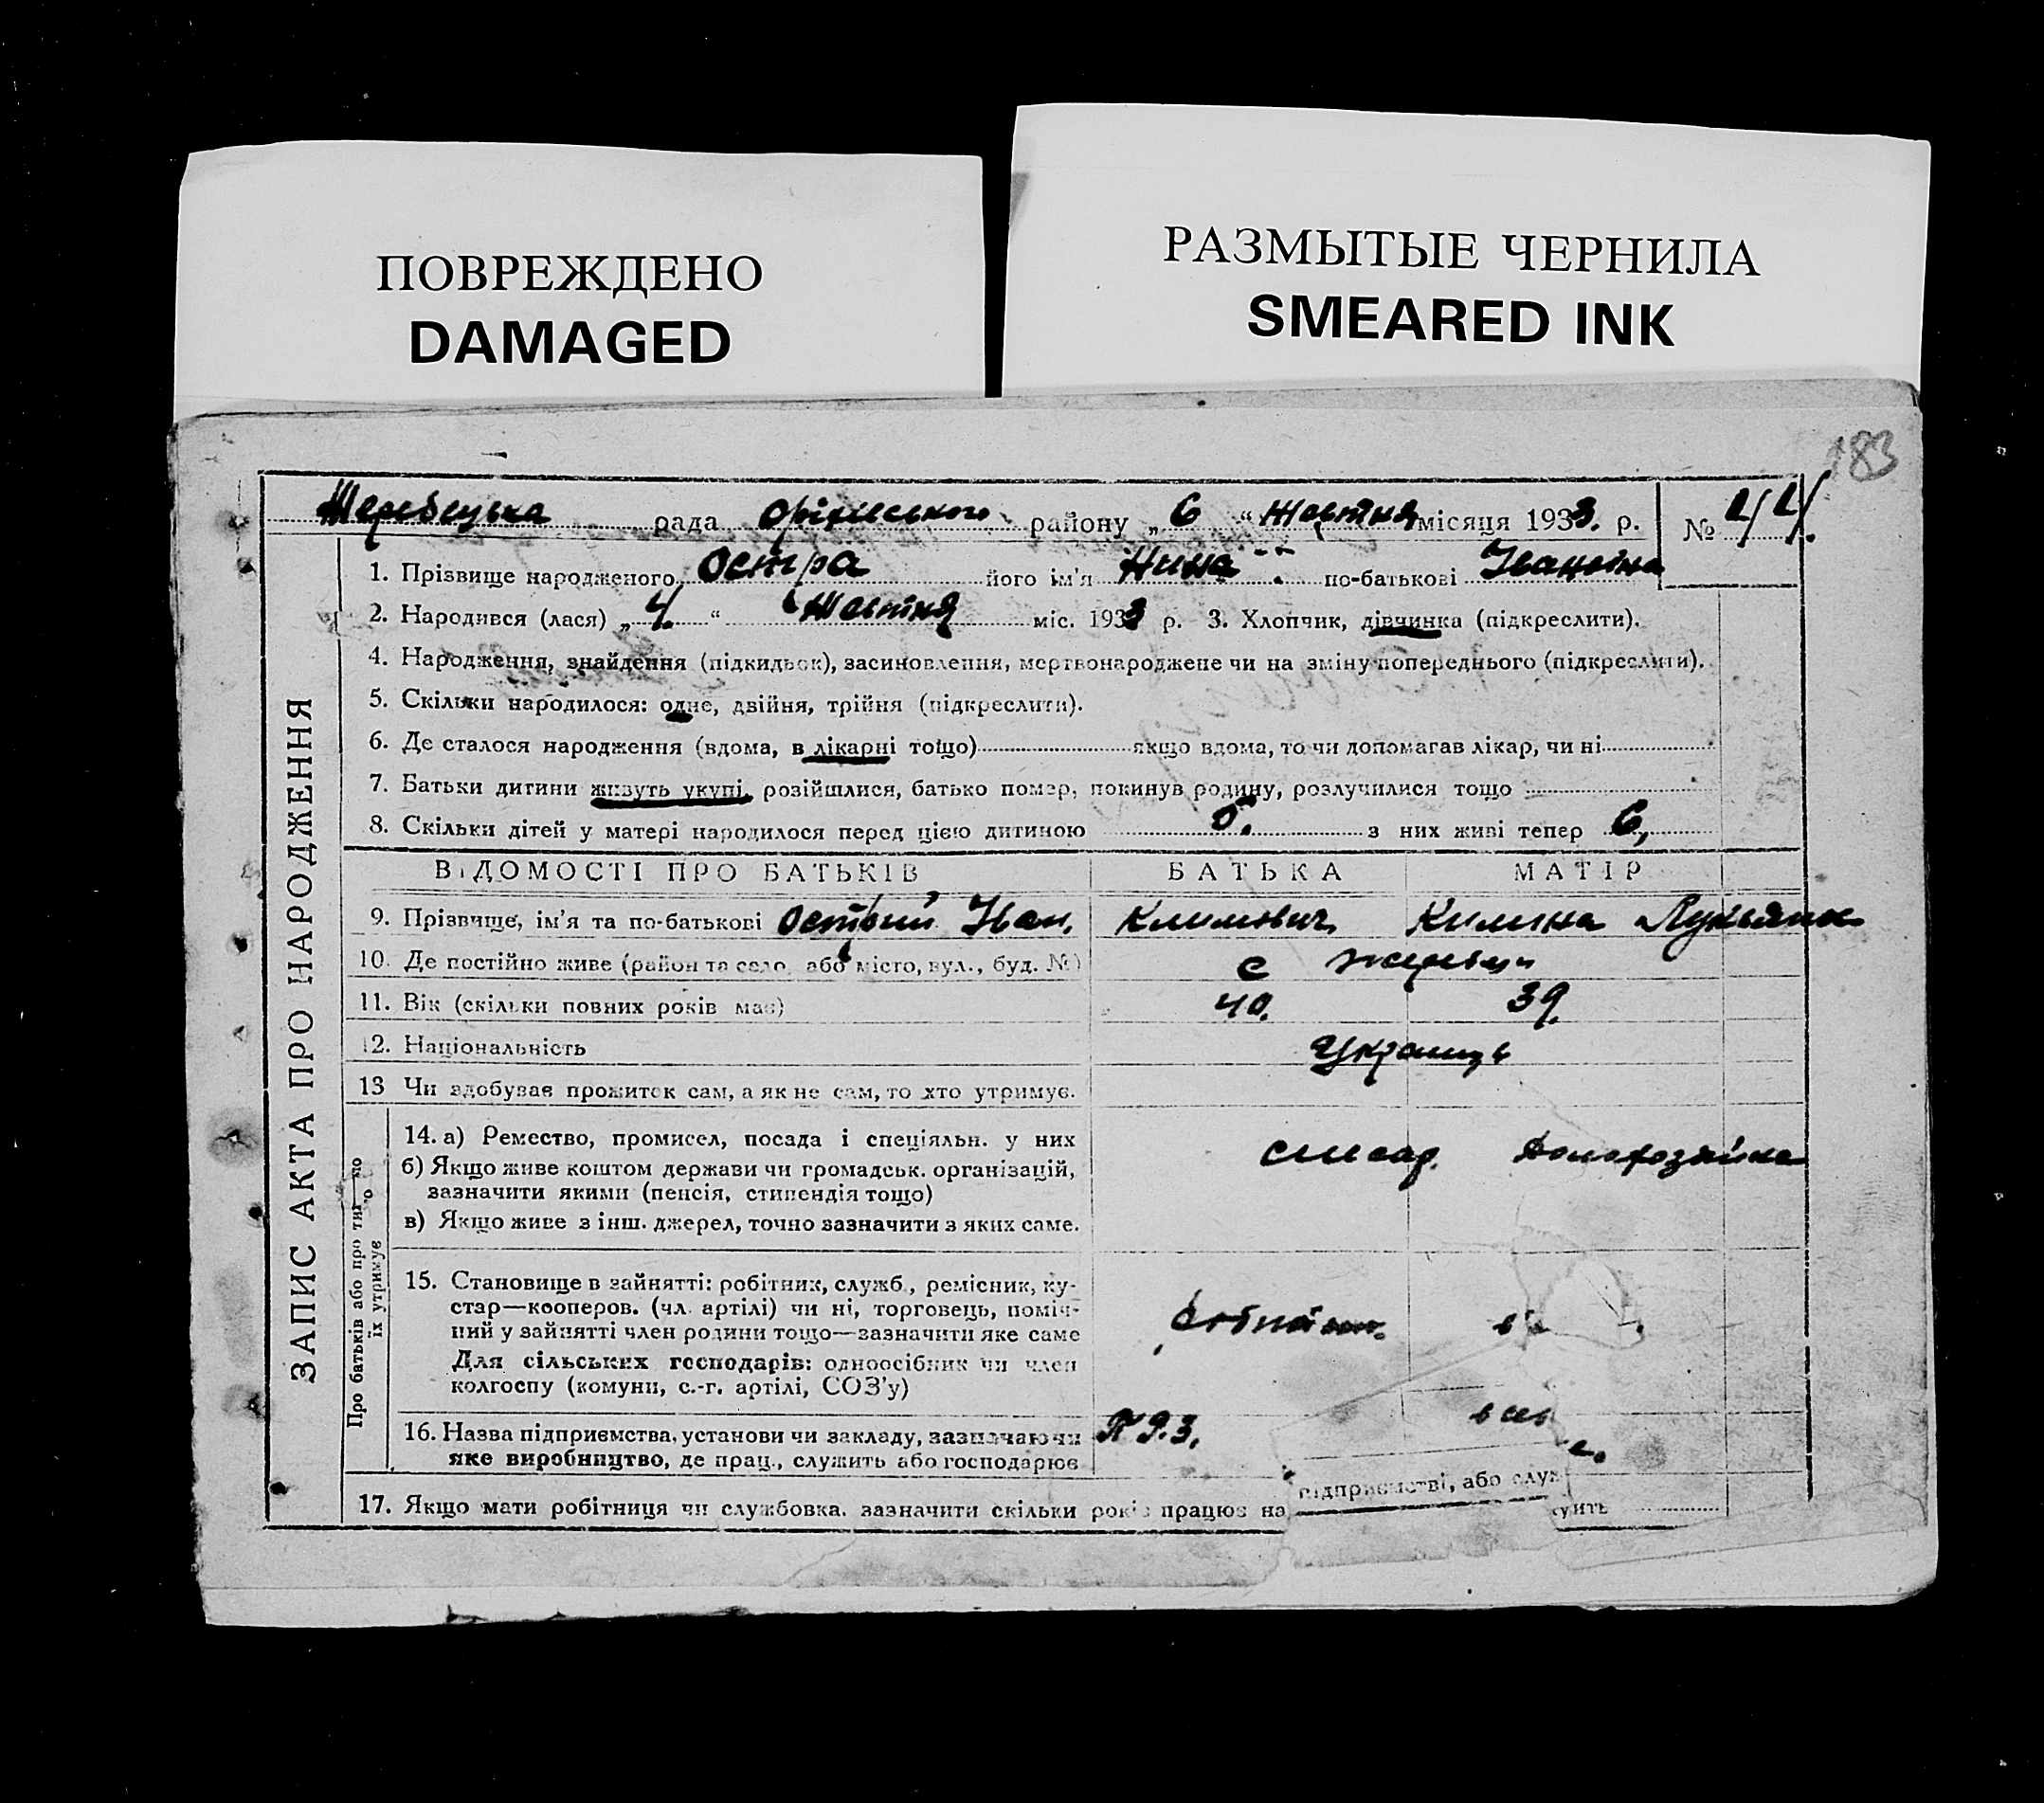 ПОВРЕЖДЕНО
DAMAGED
РАЗМЫТЫЕ ЧЕРНИЛА
SMEARED INK
183
Жеребецька рада Оріхівського району „ 6 “ Жовтня місяця 1933. р. №
1. Прізвище народженого Остра його ім'я Нина по-батькові Івановна
2. Народився (лася) „ 4. “ Жовтня міс. 1933 р. 3. Хлопчик, дівчинка (підкреслити).
4. Народження, знайдення (підкидьок), засиновлення, мертвонароджене чи на зміну попереднього (підкреслити).
5. Скільки народилося: одне, двійня, трійня (підкреслити).
6. Де сталося народження (вдома, в лікарні тощо) якщо вдома, то чи допомагав лікар, чи ні
7. Батьки дитини живуть укупі, розійшлися, батько помер, покинув родину, розлучилися тощо
8. Скільки дітей у матері народилося перед цією дитиною з них живі тепер 6,
ВІДОМОСТІ ПРО БАТЬКІВ БАТЬКА МАТІР
9. Прізвище, ім'я та по-батькові Острий Іван. Климович Килина
10. Де постійно живе (район та село, або місто, вул., буд. №) с Жеребци
11. Вік (скільки повних років має) 40. 39.
12. Національність Украинці
13 Чи здобуває прожиток сам, а як не сам, то хто утримує.
14. а) Ремество, промисел, посада і спеціяльн. у них слесар. Домохозяйка
б) Якщо живе коштом держави чи громадськ. організацій,
зазначити якими (пенсія, стипендія тощо)
в) Якщо живе з інш. джерел, точно зазначити з яких саме.
15. Становище в зайнятті: робітник, служб., ремісник, ку-
стар—кооперов. (чл. артілі) чи ні, торговець, поміч-
ний у зайнятті член родини тощо—зазначити яке саме
Для сільських господарів: одноосібник чи член
колгоспу (комуни, с.-г. артілі, СОЗ'у)
16. Назва підприємства, установи чи закладу, зазначаючи
яке виробництво, де прац., служить або господарює
17. Якщо мати робітниця чи службовка, зазначити скільки років працює на
підприємстві, або служ
ЗАПИС АКТА ПРО НАРОДЖЕННЯ
Про батьків або про тих, хто
їх утримує